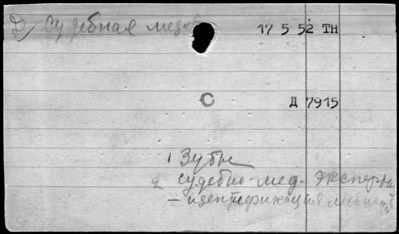 Д/ Судебная мед. 17 5 52 ТН
С
Д 7915
1 Зубы
2 судебно-мед. эксперт
— идентификация личности